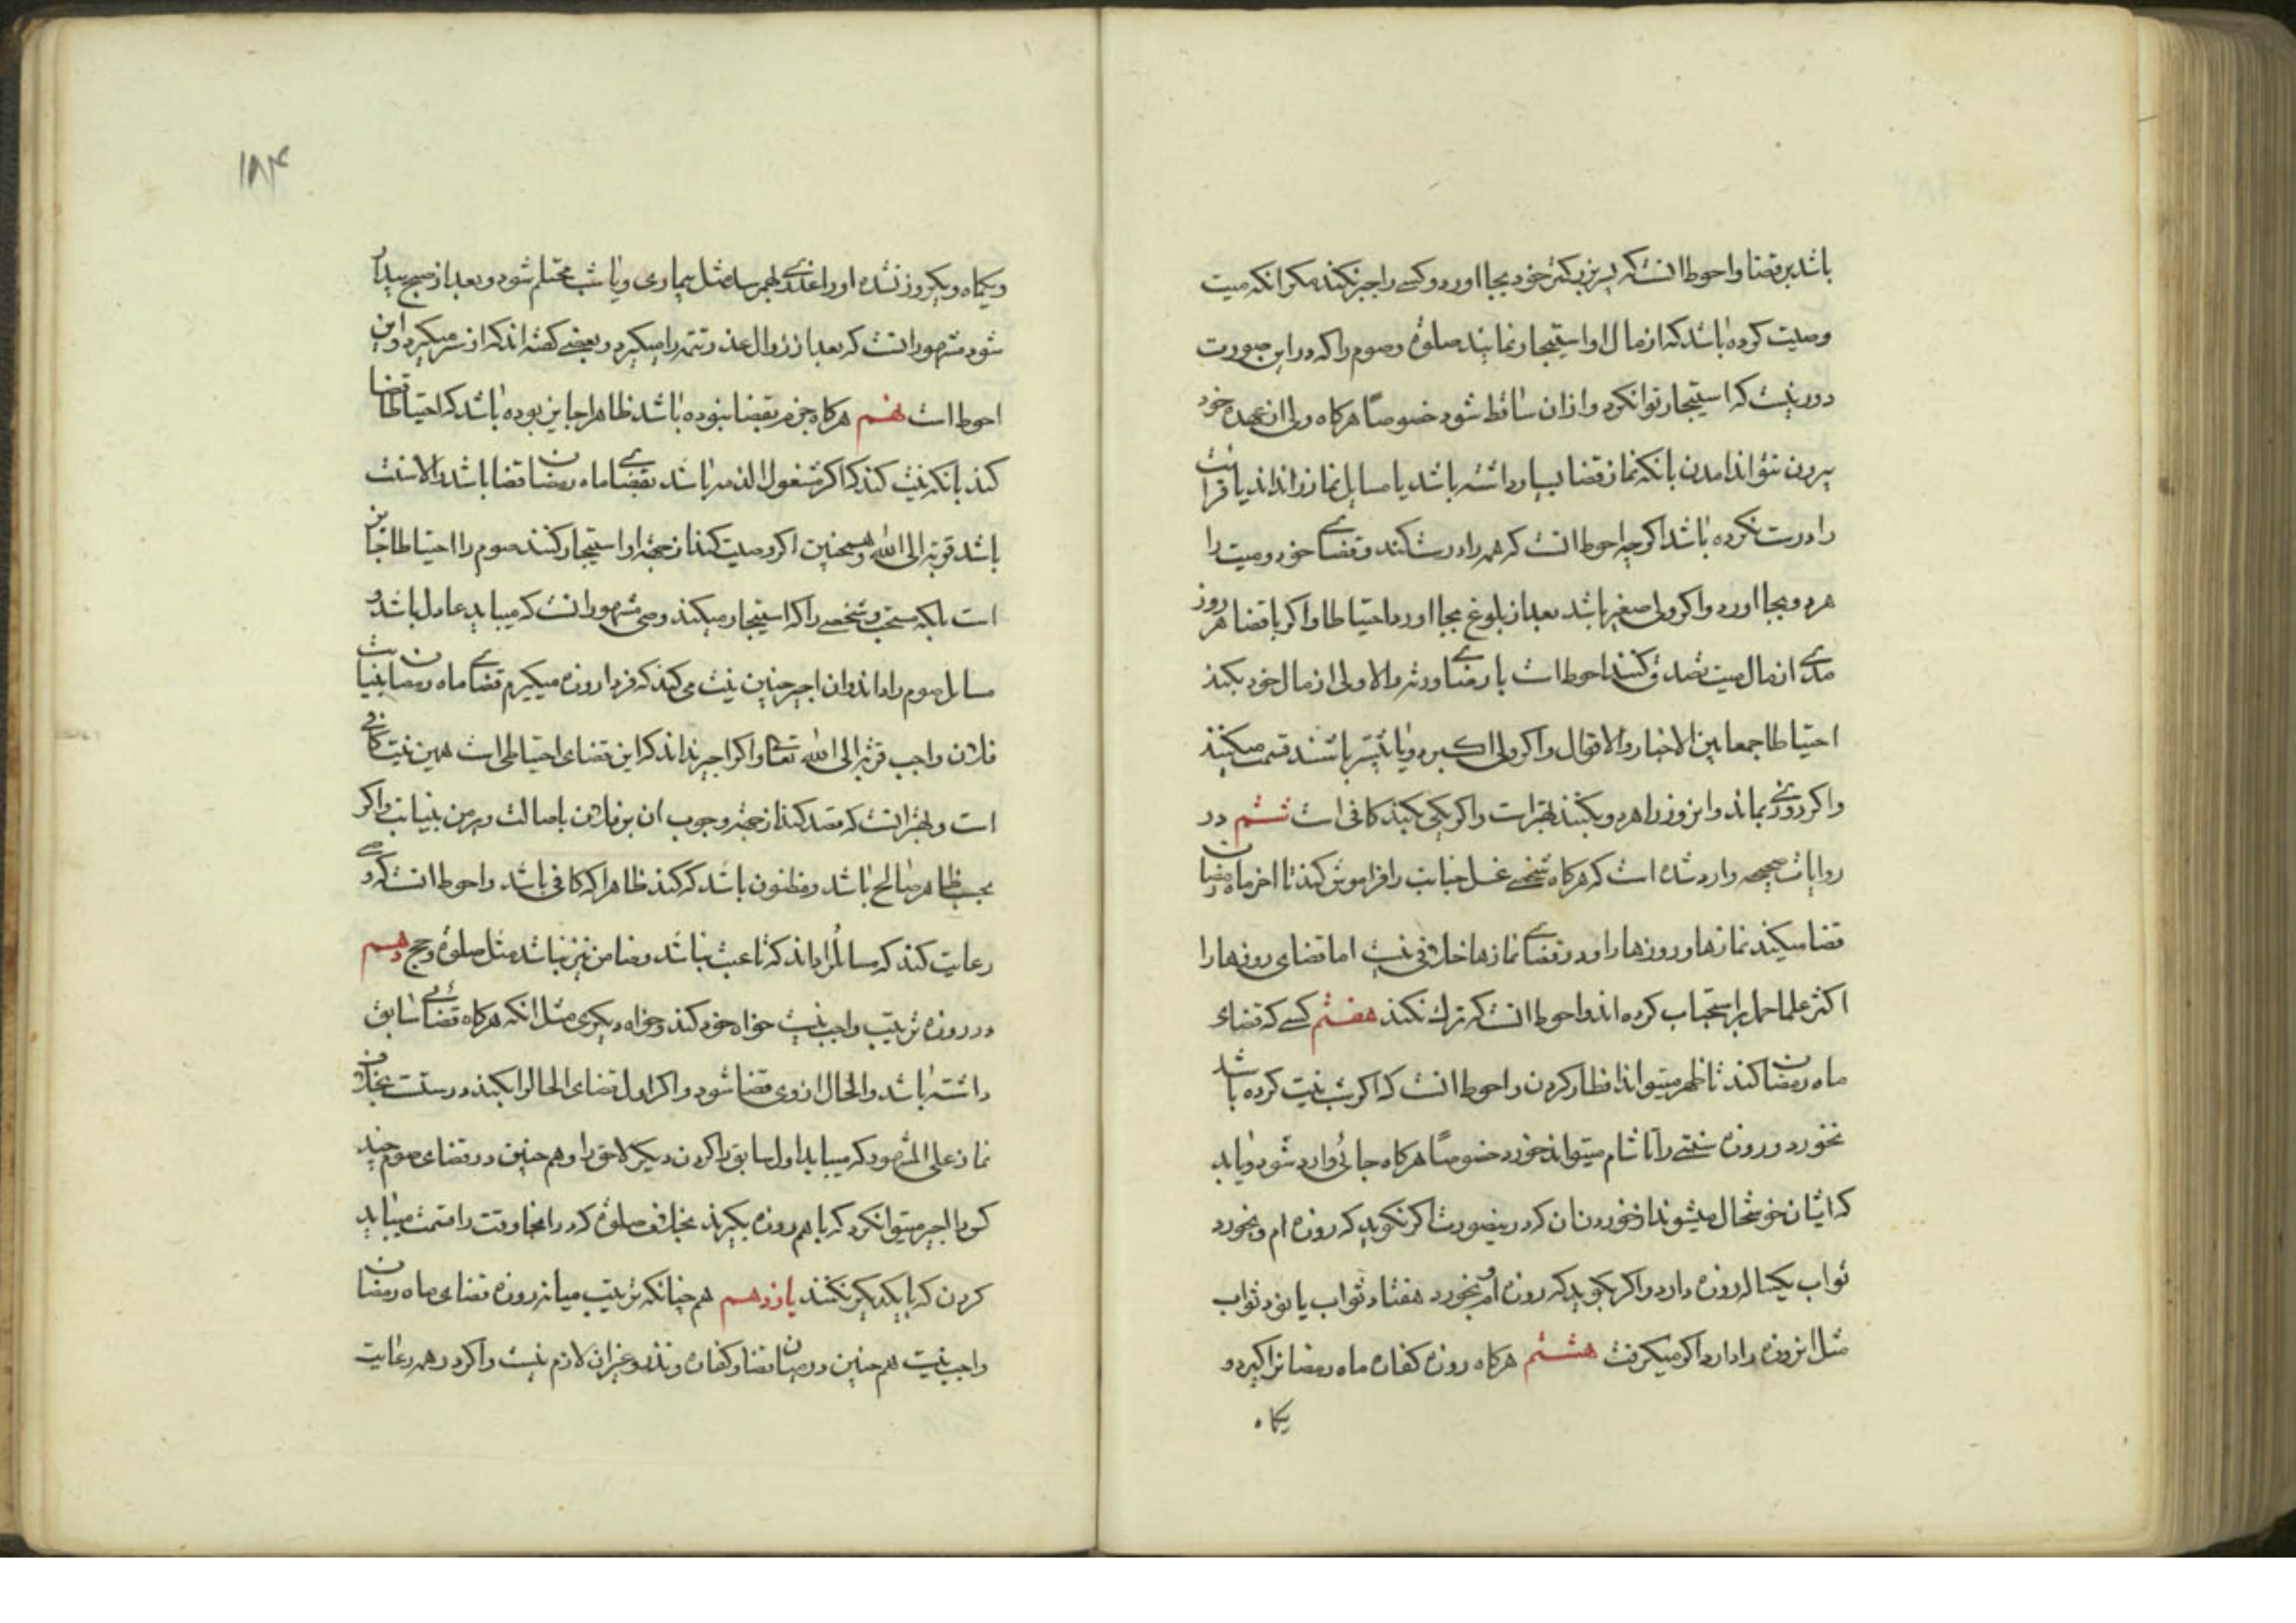 باشد بر قضا و احوط انست که پسر بزرگتر خود بجا اورد و کسی را اجیر نکند مکر انکه میت
وصیت کرده باشد که از مال او استیجار نمایند صلوة و صوم را که در این صورت
دور نیست که استیجار توان کرد و ازان ساقط شود خصوصاً هرکاه ولی از عهده خود
بیرون نتواند امدن بانکه نماز قضا بسیار داشته باشد یا مسایل نماز را نداند یا قرائت
را درست نکرده باشد اکرچه احوط انست که همه را درست کند و قضای خود و میت را
هر دو بجا اورد و اکر ولی صغیر باشد بعد از بلوغ بجا اورد احتیاطا و اکر با قضا هر روز
مدی از مال میت تصدق کنند احوط است با رضای ورثه والا ولی از مال خود بکند
احتیاطا جمعا بین الاخبار والاقوال و اکر ولی اکبر دو یا بیشتر باشند قسمت میکنند
و اکر روزی بماند و انروز را هر دو بکنند بهتر است و اکر یکی بکند کافی است ششم در
روایات صحیحه وارد شده است که هرکاه شخصی غسل جنابت را فراموش کند تا اخر ماه رمضان
قضا میکند نمازها و روزها را و در قضای نمازها خلافی نیست اما قضای روزها را
اکثر علما حمل بر استحباب کرده اند و احوط انست که ترک نکند هفتم کسی که قضاء
ماه رمضان کند تا ظهر میتواند افطار کردن و احوط انست که اکر شب نیت کرده باشد
نخورد و روزه سنتی را تا شام میتواند خورد خصوصاً هرکاه جائی وارد شود و یابد
که ایشان خوشحال میشوند از خوردن ان که در ینصورت اکر نکوید که روزه ام و بخورد
ثواب یکساله روزه دارد و اکر بکوید که روزه ام و بخورد هفتاد ثواب یا نود ثواب
مثل انروزه را دارد اکر میکرفت هشتم هرکاه روزه کفاره ماه رمضانرا کیرد و
یکماه
۱۸۴
و یکماه و یکروز نشده او را عذری بهم رسد مثل بیماری و یا شب محتلم شود و بعد از صبح بیدار
شود مشهور انست که بعد از زوال عذر تتمه را میکیرد و بعضی کفته اند که از سر میکیرد و این
احوط است نهم هرکاه جزم بقضا نبوده باشد ظاهرا جایز بوده باشد که احتیاطا قضا
کند بانکه نیت کند که اکر مشغول الذمه باشد بقضای ماه رمضان قضا باشد والا سنت
باشد قربة الی الله و همچنین اکر وصیت کند از جهة او استیجار کنند صوم را احتیاطا جایز
است بلکه مستحب و شخصی را که استیجار میکند وصی مشهور انست که میباید عادل باشد و
مسایل صوم را داند و ان اجیر چنین نیت می کند که فردا روزه میکیرم قضای ماه رمضان بنیابت
فلان واجب قربة الی الله تعالی و اکر اجیر نداند که این قضای احتیاطی است همین نیت کافی
است و بهتر انست که قصد کند از جهة وجوب ان بر فلان باصالت و بر من بنیابت و اکر
بحسب ظاهر صالح باشد و مظنون باشد که کند ظاهرا که کافی باشد و احوط انست که وصی
رعایت کند که مسائل را داند که تا عبث نباشد و ضامن نیز نباشد مثل صلوة و حج دهم
در روزه ترتیب واجب نیست خواه خود کند و خواه دیکری مثل انکه هرکاه قضائی سابق
داشته باشد و الحال از وی قضا شود و اکر اول قضای الحال را بکند درست است بخلاف
نماز علی المشهور که میباید اول سابق را کردن دیکر لاحق را و هم چنین در قضای صوم چند
کس را اجیر میتوان کرد که با هم روزه بکیرند بخلاف صلوة که در انجا وقت را قسمت میباید
کردن که با یکدیکر نکنند یازدهم هم چنانکه ترتیب میانه روزه قضای ماه رمضان
واجب نیست هم چنین در میان قضا و کفاره و نذر و غیر ان لازم نیست و اکر در همه رعایت